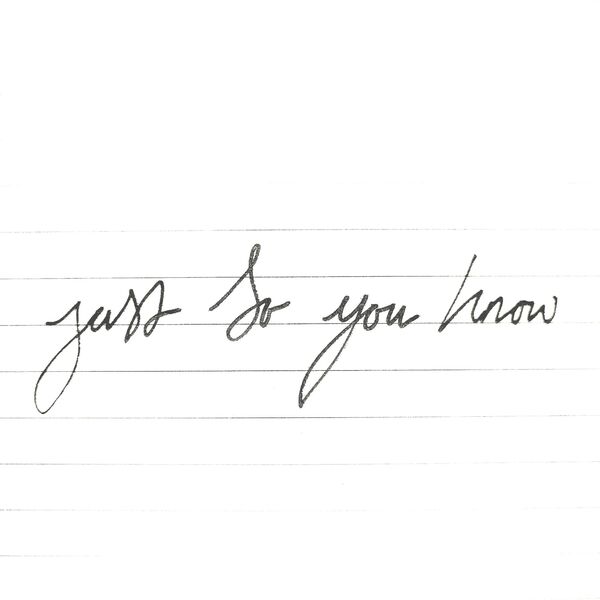 just So you know